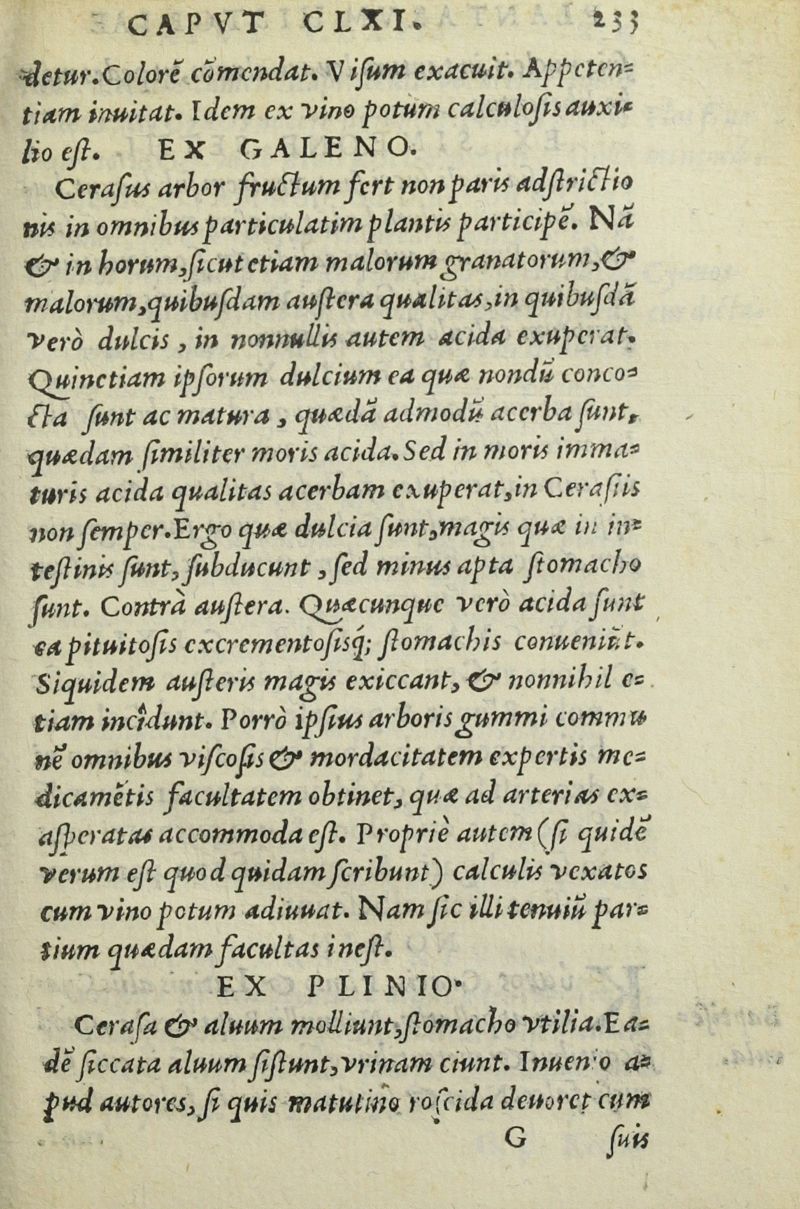 CAPVT CLXI. 233
detur. Colorẽ cõmendat. Viſum exacuit. Appeten=
tiam inuitat. Idem ex vino potum calculoſis auxi=
lio eſt. EX GALENO.
Ceraſus arbor fructum fert non paris adſtrictio
nis in omnibus particulatim plantis participẽ. Nã
& in horum, ſicut etiam malorum granatorum, &
malorum, quibuſdam auſtera qualitas, in quibuſdã
verò dulcis, in nonnullis autem acida exuperat.
Quinetiam ipſorum dulcium ea quæ nondũ conco=
cta ſunt ac matura, quædã admodũ acerba ſunt,
quædam ſimiliter moris acida. Sed in moris imma=
turis acida qualitas acerbam exuperat, in Ceraſiis
non ſemper. Ergo quæ dulcia ſunt, magis quæ in in=
teſtinis ſunt, ſubducunt, ſed minus apta ſtomacho
ſunt. Contrà auſtera. Quæcunque verò acida ſunt
ea pituitoſis excrementoſisq́; ſtomachis conueniũt.
Siquidem auſteris magis exiccant, & nonnihil e=
tiam incîdunt. Porrò ipſius arboris gummi commu
nẽ omnibus viſcoſis & mordacitatem expertis me=
dicamẽtis facultatem obtinet, quæ ad arterias ex=
aſperatas accommoda eſt. Propriè autem (ſi quidẽ
verum eſt quod quidam ſcribunt) calculis vexatos
cum vino potum adiuuat. Nam ſic illi tenuiũ par=
tium quædam facultas ineſt.
EX PLINIO.
Ceraſa & aluum molliunt, ſtomacho vtilia. Ea=
dẽ ſiccata aluum ſiſtunt, vrinam ciunt. Inuenio a=
pud autores, ſi quis matutino roſcida deuoret cum
G ſuis